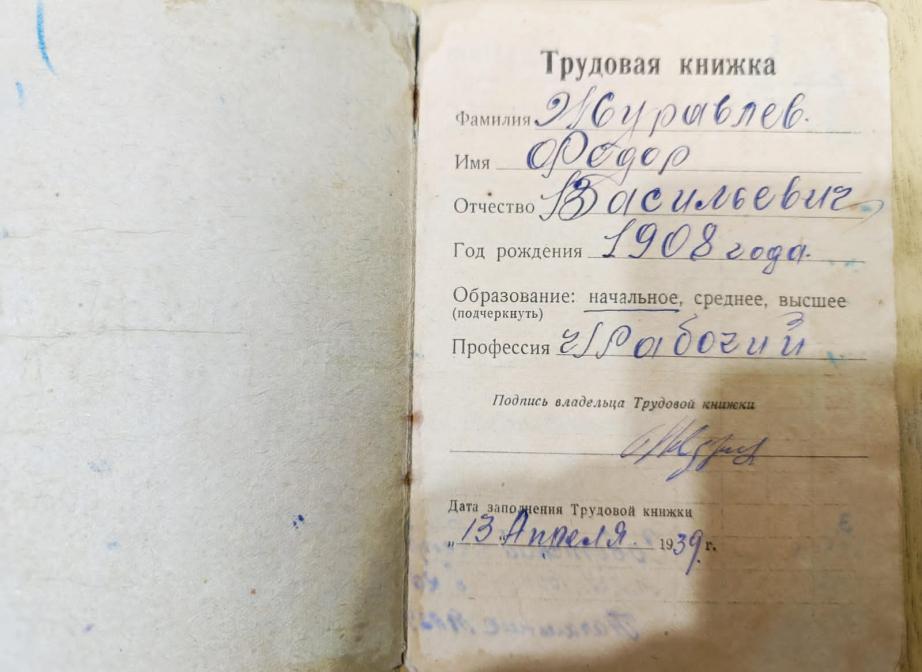 Трудовая книжка
Фамилия Журавлев.
Имя Федор
Отчество Васильевич
Год рождения 1908 года.
Образование: начальное, среднее, высшее
(подчеркнуть)
Профессия Рабочий
Подпись владельца Трудовой книжки
Дата заполнения Трудовой книжки
„13" Апреля. 1939 г.